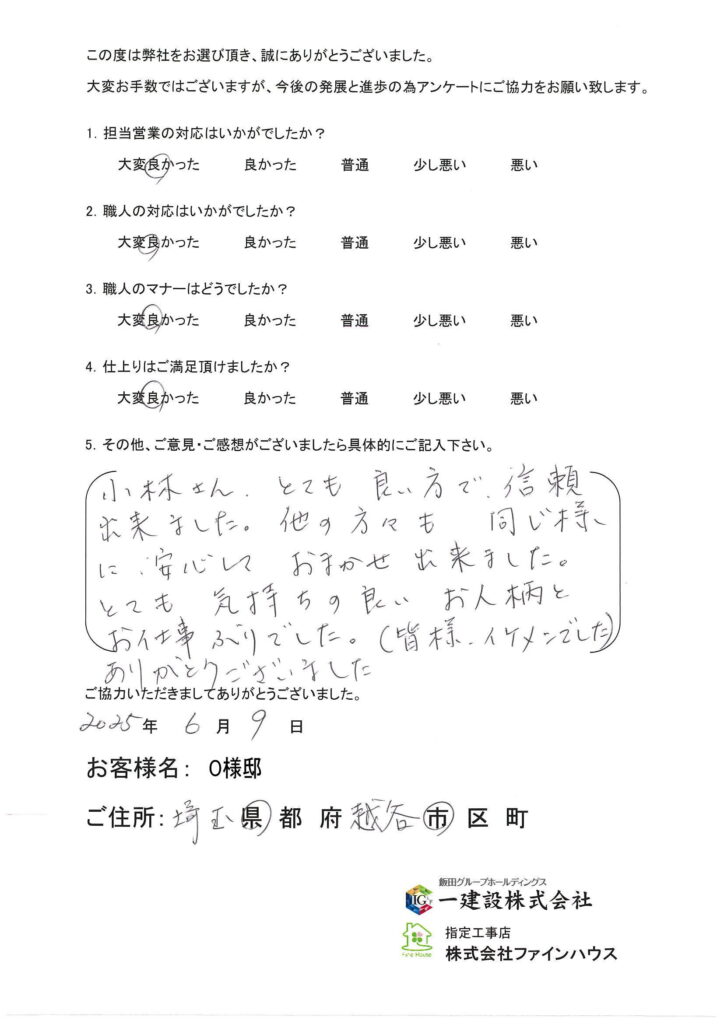 この度は弊社をお選び頂き、誠にありがとうございました。
大変お手数ではございますが、今後の発展と進歩の為アンケートにご協力をお願い致します。
1. 担当営業の対応はいかがでしたか？
大変良かった 良かった 普通 少し悪い 悪い
2. 職人の対応はいかがでしたか？
大変良かった 良かった 普通 少し悪い 悪い
3. 職人のマナーはどうでしたか？
大変良かった 良かった 普通 少し悪い 悪い
4. 仕上りはご満足頂けましたか？
大変良かった 良かった 普通 少し悪い 悪い
5. その他、ご意見・ご感想がございましたら具体的にご記入下さい。
小林さん、とても良い方で、信頼
出来ました。他の方々も 同じ様、
に、安心して おまかせ 出来ました。
とても 気持ちの良い お人柄と
お仕事ぶりでした。(皆様、イケメンでした)
ありがとうございました
ご協力いただきましてありがとうございました。
2025年 6月 9日
お客様名： O様邸
ご住所：埼玉県 都 府 越谷市 区 町
飯田グループホールディングス
IG
一建設株式会社
指定工事店
Fine House
株式会社ファインハウス